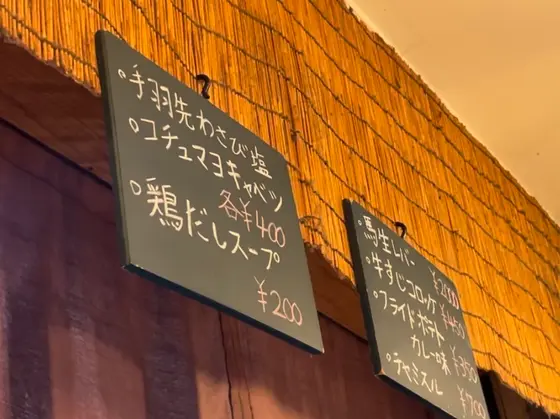 ○手羽先わさび塩
○コチュマヨキャベツ
各¥400
○鶏だしスープ
¥200
○馬生レバー
○牛すじコロッケ ¥450
○フライドポテト
カレー味 ¥350
○チャミスル ¥700